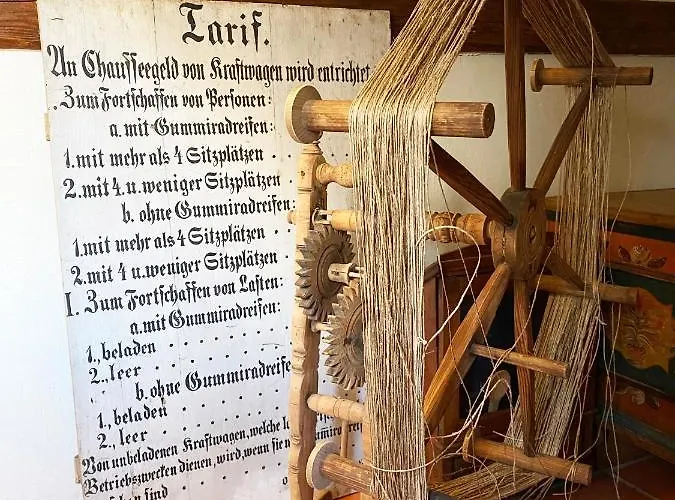 Tarif.
An Chausseegeld von Kraftwagen wird entrichtet
Zum Fortschaffen von Personen:
a. mit Gummiradreifen:
1. mit mehr als 4 Sitzplätzen . .
2. mit 4. u. weniger Sitzplätzen
b. ohne Gummiradreifen:
1. mit mehr als 4 Sitzplätzen .
2. mit 4 u. weniger Sitzplätzen .
I. Zum Fortschaffen von Lasten:
a. mit Gummiradreifen:
1., beladen
2., leer
b. ohne Gummiradreife
1., beladen
2., leer
Von unbeladenen Kraftwagen, welche
Betriebszwecken dienen, wird, wenn sie
sind